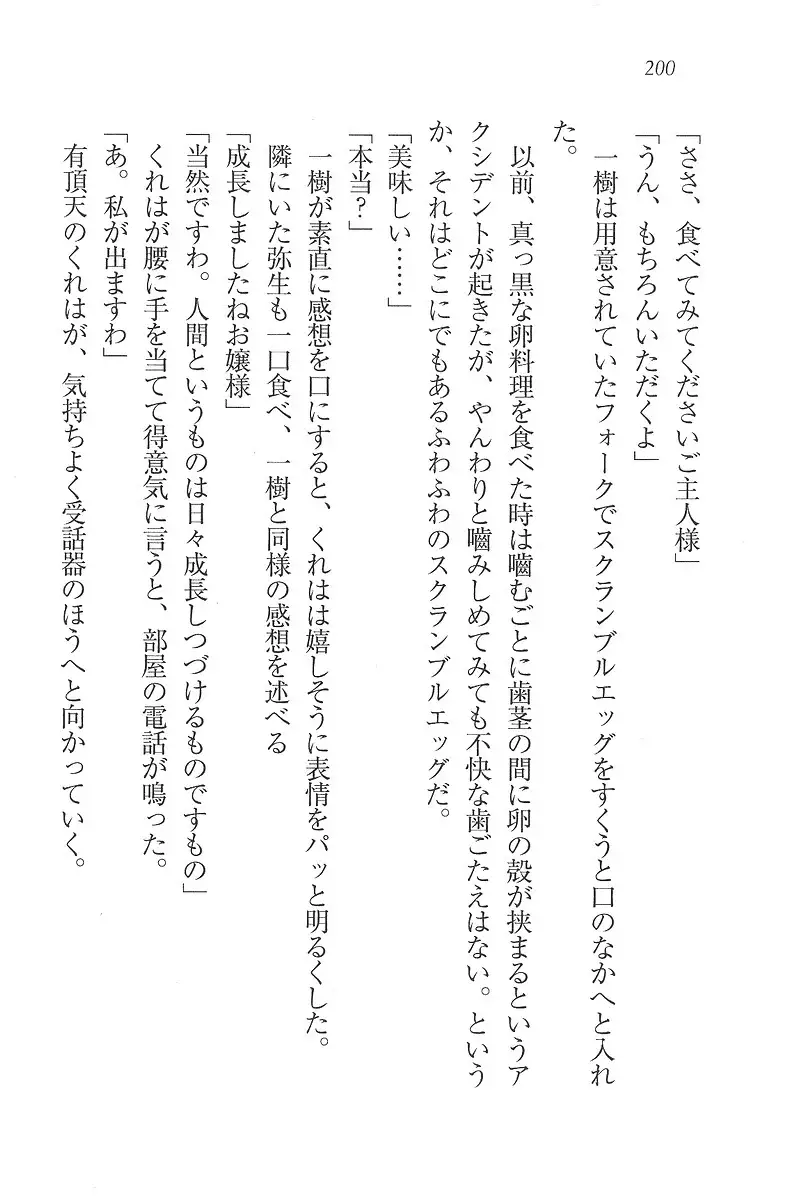 200
「ささ、食べてみてくださいご主人様」
「うん、もちろんいただくよ」
一樹は用意されていたフォークでスクランブルエッグをすくうと口のなかへと入れ
た。
以前、真っ黒な卵料理を食べた時は噛むごとに歯茎の間に卵の殻が挟まるというア
クシデントが起きたが、やんわりと噛みしめてみても不快な歯ごたえはない。という
か、それはどこにでもあるふわふわのスクランブルエッグだ。
「美味しい……」
「本当？」
一樹が素直に感想を口にすると、くれはは嬉しそうに表情をパッと明るくした。
隣にいた弥生も一口食べ、一樹と同様の感想を述べる
「成長しましたねお嬢様」
「当然ですわ。人間というものは日々成長しつづけるものですもの」
くれはが腰に手を当てて得意気に言うと、部屋の電話が鳴った。
「あ。私が出ますわ」
有頂天のくれはが、気持ちよく受話器のほうへと向かっていく。